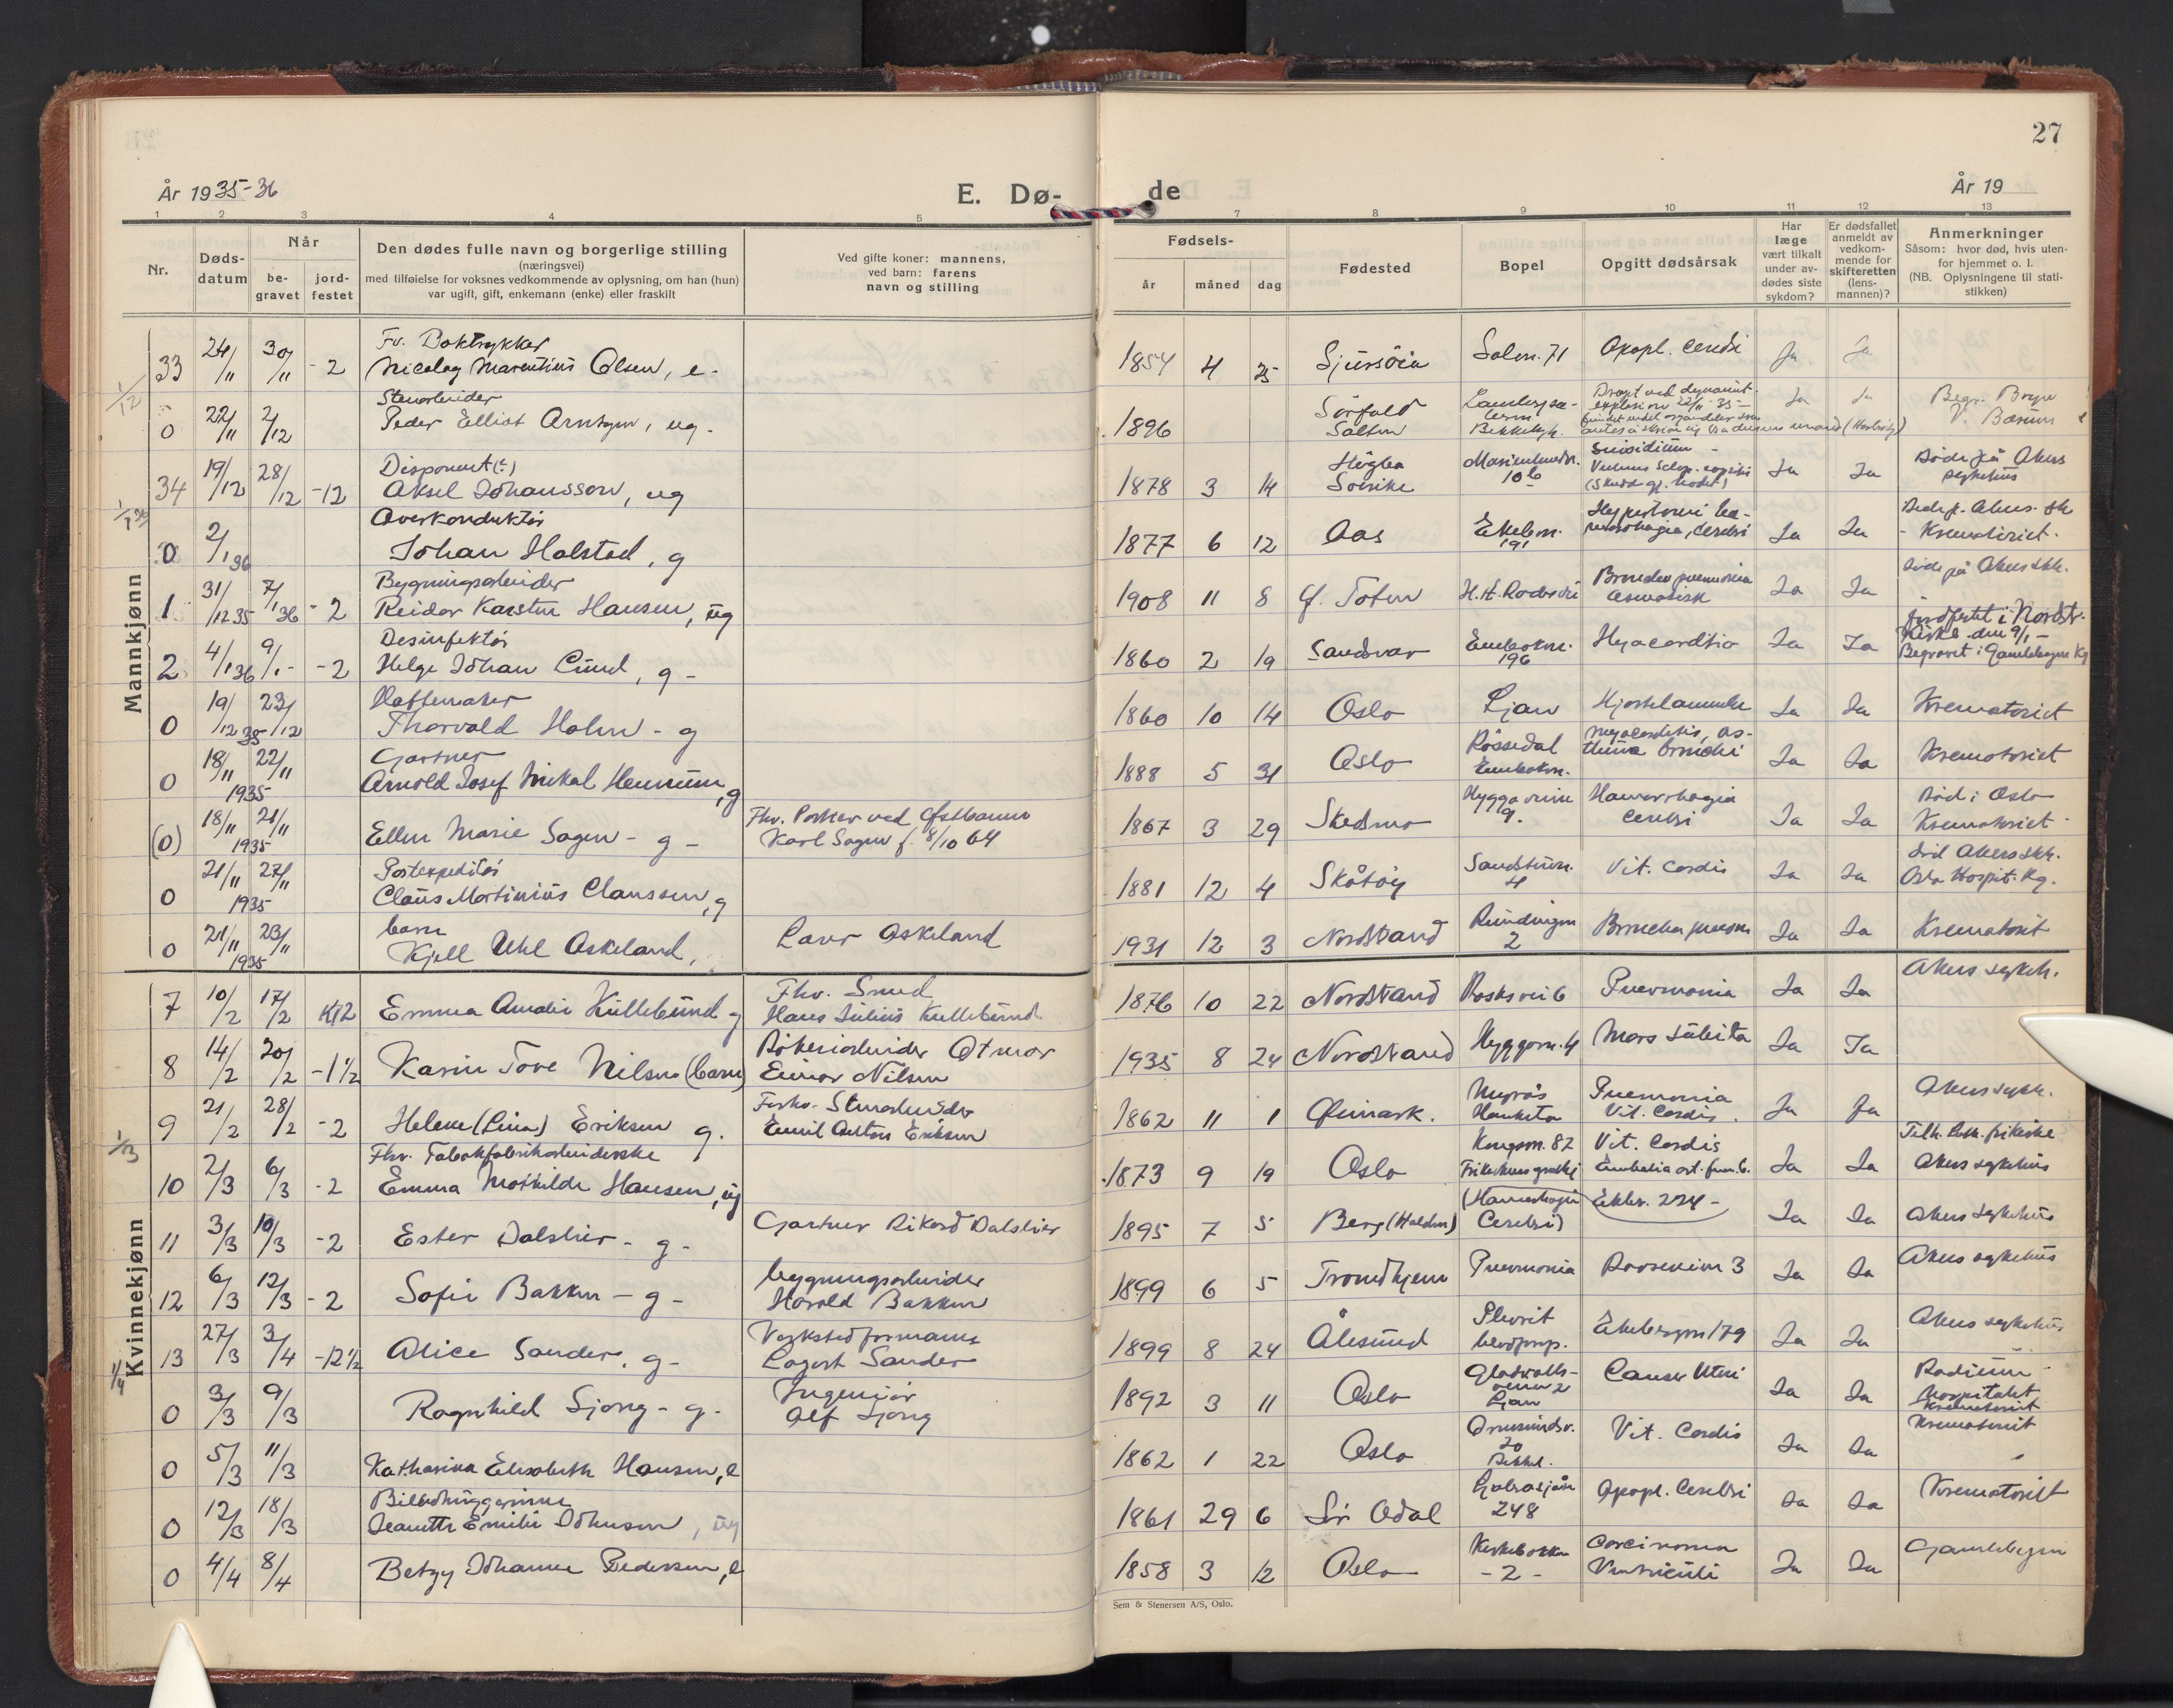 27
År 1935-36
E. Dø-
de
År 19
1 2 3 4 5 7 8 9 10 11 12 13
Nr.
Døds-
datum
Når
be-
gravet
jord-
festet
Den dødes fulle navn og borgerlige stilling
(næringsvei)
med tilføielse for voksnes vedkommende av oplysning, om han (hun)
var ugift, gift, enkemann (enke) eller fraskilt
Ved gifte koner: mannens,
ved barn: farens
navn og stilling
Fødsels-
år måned dag
Fødested
Bopel
Opgitt dødsårsak
Har
læge
vært tilkalt
under av-
dødes siste
sykdom?
Er dødsfallet
anmeldt av
vedkom-
mende for
skifteretten
(lens-
mannen)?
Anmerkninger
Såsom: hvor død, hvis uten-
for hjemmet o. l.
(NB. Oplysningene til stati-
stikken)
Mannkjønn
1/12
Fv. Boktrykker
33 24/11 30/11 -2 Nicolay Marentius Olsen, e. 1854 4 25 Sjursöia Solvn. 71 Apopl. cerebri Ja Ja
Stenarbeider
0 22/11 2/12 Peder Elliot Arntzen, ug. 1896 Sörfold Salten Bekkelgh. Drept ved dynamit-
explosion 22/11-35 Ja Ja Begr. V. Bærum
Disponent(?)
34 19/12 28/12 -12 Aksel Johansson, ug 1878 3 14 10b Suicidium
(Skudd gj. hodet) Ja Ja Døde på Akers sykehus
Overkonduktör
0 2/1 36 Johan Halstad, g 1877 6 12 Aas Ekebvn. 191 Ja Ja Døde p. Akers. sk
- Krematoriet.
Bygningsarbeider
1 31/12 35 7/1 36 -2 Reidar Karsten Hansen, ug 1908 11 8 Ö. Toten Ja Ja Døde på Akers skh.
Desinfektör
2 4/1 36 9/1 -2 Helge Johan Lund, g - 1860 2 19 Sandsvær 196 Myocarditis Ja Ja jordfestet i Nordstr.
Kirke den 9/1 -
Begravet i Gamlebyen Kg
Hattemaker
0 19/12 35 23/12 Thorvald Holm - g 1860 10 14 Oslo Ljan Hjertelammelse Ja Ja Krematoriet
Gartner
0 18/11 22/11 1935 Arnold Josef Mikal Hennum, g 1888 5 31 Oslo Myocarditis, as-
thma bronchi Ja Ja Krematoriet
(0) 18/11 21/11 1935 Ellen Marie Sagen - g - Fhv. Portner ved Østbanen
Karl Sagen f. 8/10 64 1867 3 29 Skedsmo Hyggoveien 9. Hæmorrhagia cerebri Ja Ja Död i Oslo
Krematoriet
Postexpeditör
0 21/11 27/11 1935 Claus Martinius Clausson, g 1881 12 4 Skåtöy Sandstuvn. 4 Vit. Cordis Ja Ja Död Akers skh.
Oslo Hospit. Kg.
barn
0 21/11 23/11 1935 Kjell Uhl Askeland, Laur Askeland 1931 12 3 Nordstrand 2 Ja Ja Krematoriet
Kvinnekjønn
7 10/2 17/2 Kl 2 Emma Amalie Kullebund g Fhv. Smed
Hans Julius Kullebund 1876 10 22 Nordstrand Pneumonia Ja Ja Akers sykeh.
8 14/2 20/2 -1 1/2 Karin Tove Nilsen (barn) Einar Nilsen 1935 8 24 Nordstrand Hyggovn. 4 Mors subita Ja Ja
1/3
9 21/2 28/2 -2 Helene (Lina) Eriksen g. Forhv. Stenarbeider
Emil Anton Eriksen 1862 11 1 Pneumonia
Vit. Cordis Ja Ja Akers sykh.
Fhv. Tobakfabrikarbeiderske
10 2/3 6/3 -2 Emma Mathilde Hansen, ug 1873 9 19 Oslo Kongsvn. 82 Vit. Cordis Ja Ja Tilh. Luth. frikirke
Akers sykehus
11 3/3 10/3 -2 Ester Dalslier - g - Gartner Rikard Dalslier 1895 7 5 Berg (Halden) (Hæmorrhagia
Cerebri) Ekbv. 224 - Ja Ja Akers sykehus
12 6/3 12/3 -2 Sofie Bakken - g - bygningsarbeider
Harald Bakken 1899 6 5 Trondhjem Pneumonia Ja Ja Akers sykehus
1/4
13 27/3 3/4 -12 1/2 Alice Sander, g - Verkstedformann
Lagert Sander 1899 8 24 Ålesund Plevrit
blodprop. Ekebergvn 179 Ja Ja Akers sykehus
0 3/3 9/3 Ragnhild Ljong - g - Ingeniör
Alf Ljong 1892 3 11 Oslo Ljan Cancer Uteri Ja Ja Radium
hospitalet
Krematoriet
0 5/3 11/3 Katharina Elisabeth Hansen, e 1862 1 22 Oslo Ormsundsv. 20
Bekkel. Vit. Cordis Ja Ja Krematoriet
Billedhuggerinne
0 12/3 18/3 Jeanette Emilie Johnsen, ug 1861 29 6 Sör Odal 248 Apopl. Cerebri Ja Ja Krematoriet
0 4/4 8/4 Betzy Johanne Pedersen, e 1858 3 12 Oslo Kirkebakken
- 2 - Carcinoma
Ventriculi Ja Ja Gamlebyen
Sem & Stenersen A/S, Oslo.